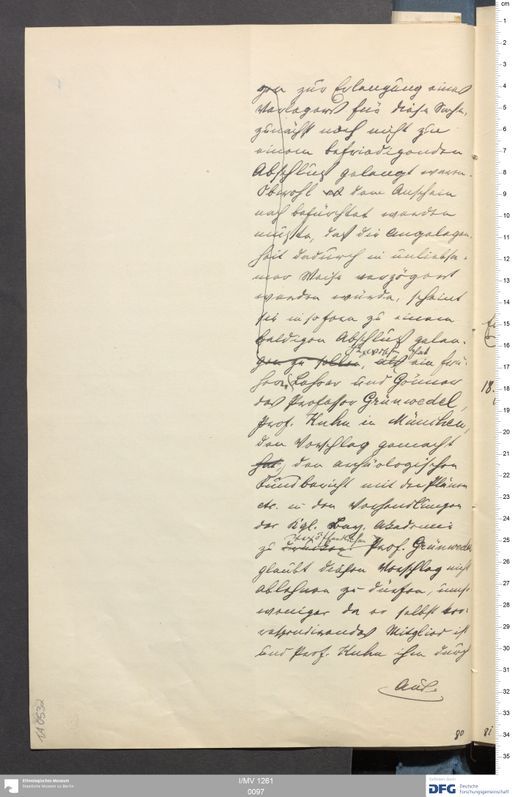 gen zur Erlangung eines
Verlegers für diese Sache,
zunächst noch nicht zu
einem befriedigenden
Abschluß gelangt waren.
Obwohl es dem Anschein
nach befürchtet werden
mußte, daß die Angelegen-
heit dadurch in unliebsa-
mer Weise verzögert
werden würde, scheint
sie insofern zu einem
baldigen Abschluß gelan-
gen zu sollen, als ein frü-
herer Lehrer und Gönner
des Professor Grünwedel,
Prof. Kuhn in München,
den Vorschlag gemacht
hat, den archäologischen
Fundbericht mit den Plänen
etc. in den Verhandlungen
der Kgl. Bay. Akademie
zu veröffentlichen Prof. Grünwedel
glaubt diesen Vorschlag nicht
ablehnen zu dürfen, umso
weniger da er selbst cor-
respondirendes Mitglied ist
und Prof. Kuhn ihm durch
80
81
18.
1A 0532
Ethnologisches Museum
Staatliche Museen zu Berlin
I/MV 1261
0097
DFG
Deutsche
Forschungsgemeinschaft